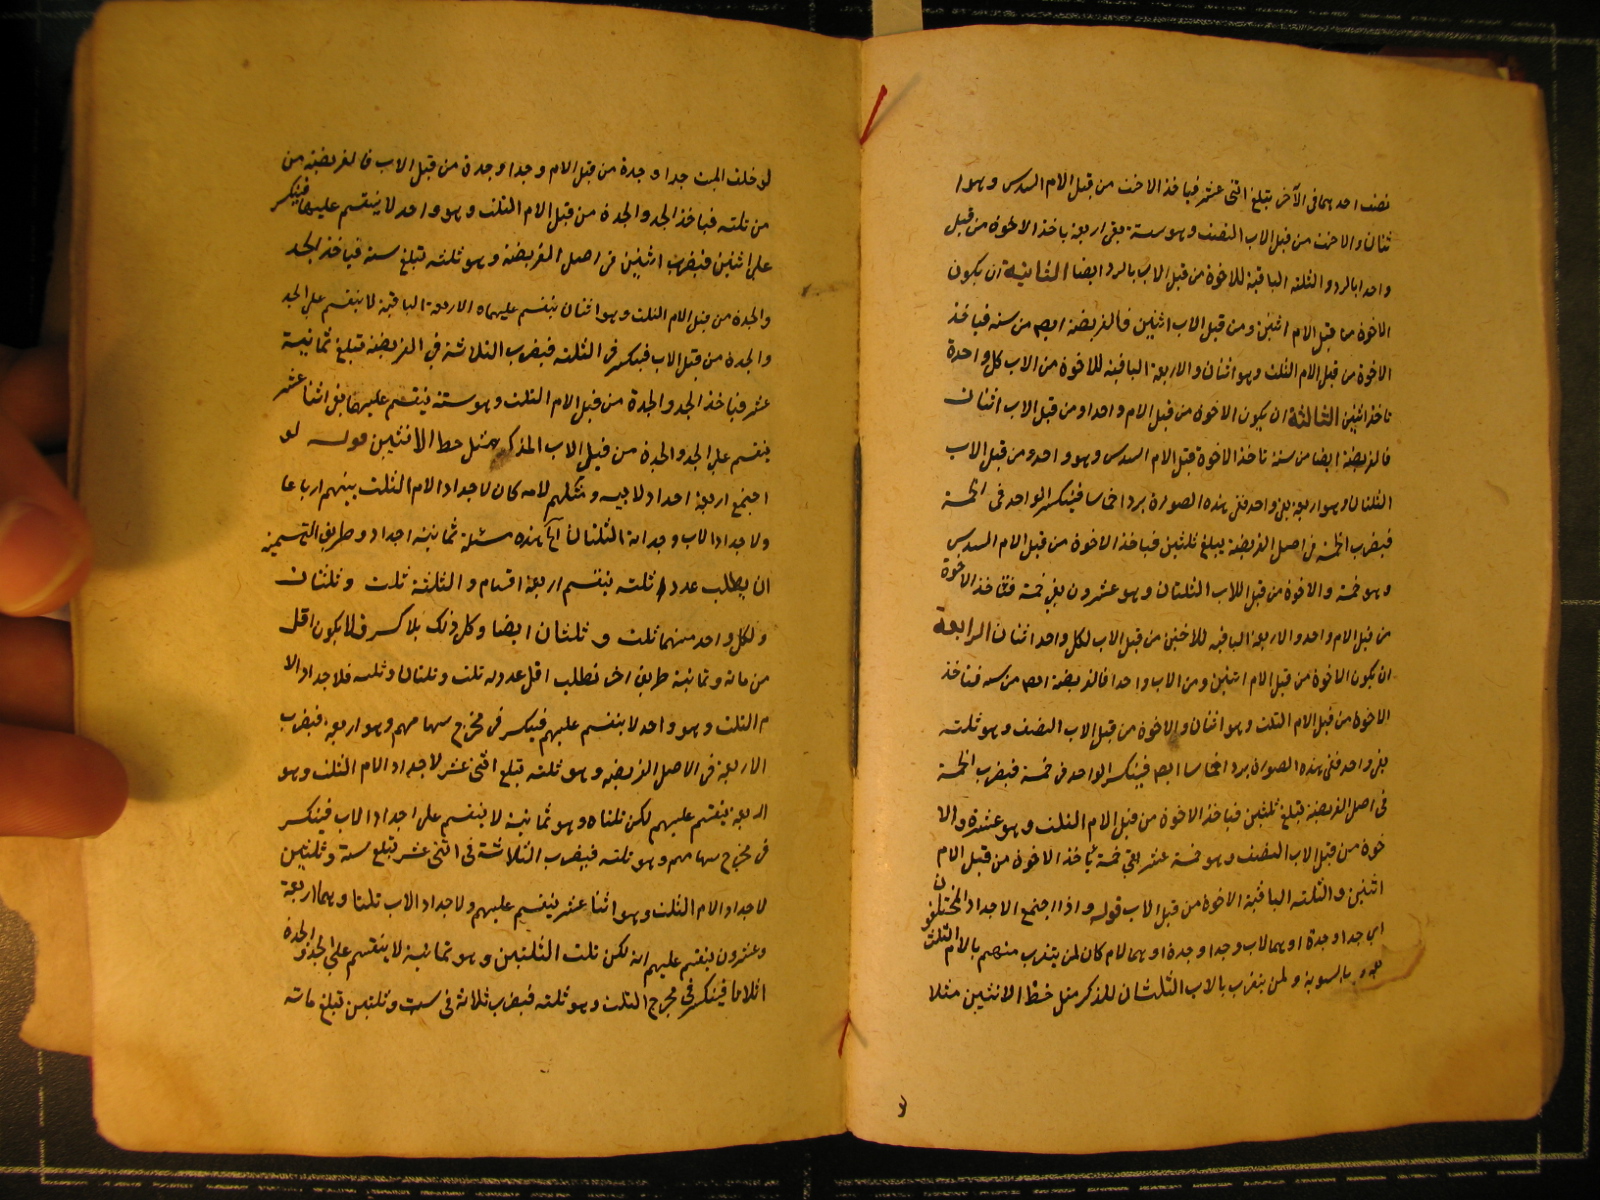 نصف احدهما فى الآخر تبلغ اثنى عشر فياخذ الاخت من قبل الام السدس وهو ا
ثنان والاخت من قبل الاب النصف وهو ستة بقى اربعة ياخذ الاخوة من قبل
واحدا بالرد والثلثه الباقية للاخوة من قبل الاب بالرد ايضا الثانية ان يكون
الاخوة من قبل الام اثنين ومن قبل الاب اثنين فالفريضة ايضا من سته فياخذ
الاخوة من قبل الام الثلث وهو اثنان والاربعة الباقية للاخوة من الاب كل واحدة
تاخذ اثنين الثالثة ان يكون الاخوة من قبل الام واحدا ومن قبل الاب اثنان
فالفريضة ايضا من ستة تاخذ الاخوة قبل الام السدس وهو واحد ومن قبل الاب
الثلثان وهو اربعة بقى واحد ففى هذه الصورة يرد اخماسا فينكسر الواحد فى الخمسة
فيضرب الخمسة فى اصل الفريضة يبلغ ثلثين فياخذ الاخوة من قبل الام السدس
وهو خمسة والاخوة من قبل اللاب الثلثان وهو عشرون بقى خمسة فتاخذ الاخوة
من قبل الام واحد والاربعة الباقيه للاختين من قبل الاب لكل واحد اثنان الرابعة
ان يكون الاخوة من قبل الام اثنين ومن الاب واحدا فالفريضة ايضا من سته فتاخذ
الاخوة من قبل الام الثلث وهو اثنان والاخوة من قبل الاب النصف وهو ثلثه
بقى واحد ففى هذه الصورة يرد اخماسا ايضا فينكسر الواحد فى خمسة فيضرب الخمسة
فى اصل الفريضة يبلغ ثلثين فياخذ الاخوة من قبل الام الثلث وهو عشرة والا
خوة من قبل الاب النصف وهو خمسة عشر بقى خمسة ياخذ الاخوة من قبل الام
اثنين والثلثه الباقية الاخوة من قبل الاب قوله واذا اجتمع الاجداد المختلفون
اى جدا وجدة او هما لاب وجدا وجدة او هما لام كان لمن يتقرب منهم بالام الثلث
بالسوية ولمن يتقرب بالاب الثلثان للذكر مثل حظ الانثيين مثلا
لو خلف الميت جدا وجدة من قبل الام وجدا وجدة من قبل الاب فالفريضة من
من ثلثه فياخذ الجد والجدة من قبل الام الثلث وهو واحد لا ينقسم عليهما فينكسر
على اثنين فيضرب اثنين فى اصل الفريضة وهو ثلثه تبلغ سته فياخذ الجد
والجدة من قبل الام الثلث وهو اثنان ينقسم عليهما والاربعة الباقية لا ينقسم على الجد
والجدة من قبل الاب فينكسر فى الثلثه فيضرب الثلاثة فى الفريضة تبلغ ثمانية
عشر فياخذ الجد والجدة من قبل الام الثلث وهو سته ينقسم عليهما بقى اثنا عشر
ينقسم على الجد والجدة من قبل الاب المذكر مثل حظ الانثيين قوله لو
اجتمع اربعة اجداد لابيه ومثلهم لامه كان لاجداد الام الثلث بينهم ارباعا
ولاجداد الاب وجداته الثلثان هذه مسئلة ثمانية اجداد وطريق التقسيم
ان يطلب عددا ثلثه ينقسم اربعة اقسام والثلثة ثلث وثلثان
ولكل واحد منهما ثلث وثلثان ايضا وكل ذلك بلا كسر فلا يكون اقل
من مائة وثمانية طريق اخر نطلب اقل عدد له ثلث وثلثان وثلثه فلاجداد الا
م الثلث وهو واحد لا ينقسم عليهم فينكسر فى مخرج سهامهم وهو اربعة فيضرب
الاربعة فى الاصل الفريضه وهو ثلثه تبلغ اثنى عشر لاجداد الام الثلث وهو
اربعة ينقسم عليهم لكن ثلثاه وهو ثمانية لا ينقسم على اجداد الاب فينكسر
فى مخرج سهامهم وهو ثلثه فيضرب الثلاثة فى اثنى عشر تبلغ ستة وثلثين
لاجداد الام الثلث وهو اثنا عشر ينقسم عليهم ولاجداد الاب ثلثا وهما اربعة
وعشرون ينقسم عليهم لكن ثلث الثلثين وهو ثمانية لا ينقسم على الجد والجدة
اثلاثا فينكسر فى مخرج الثلث وهو ثلثه فيضرب ثلاثة فى ست وثلثين تبلغ مائه